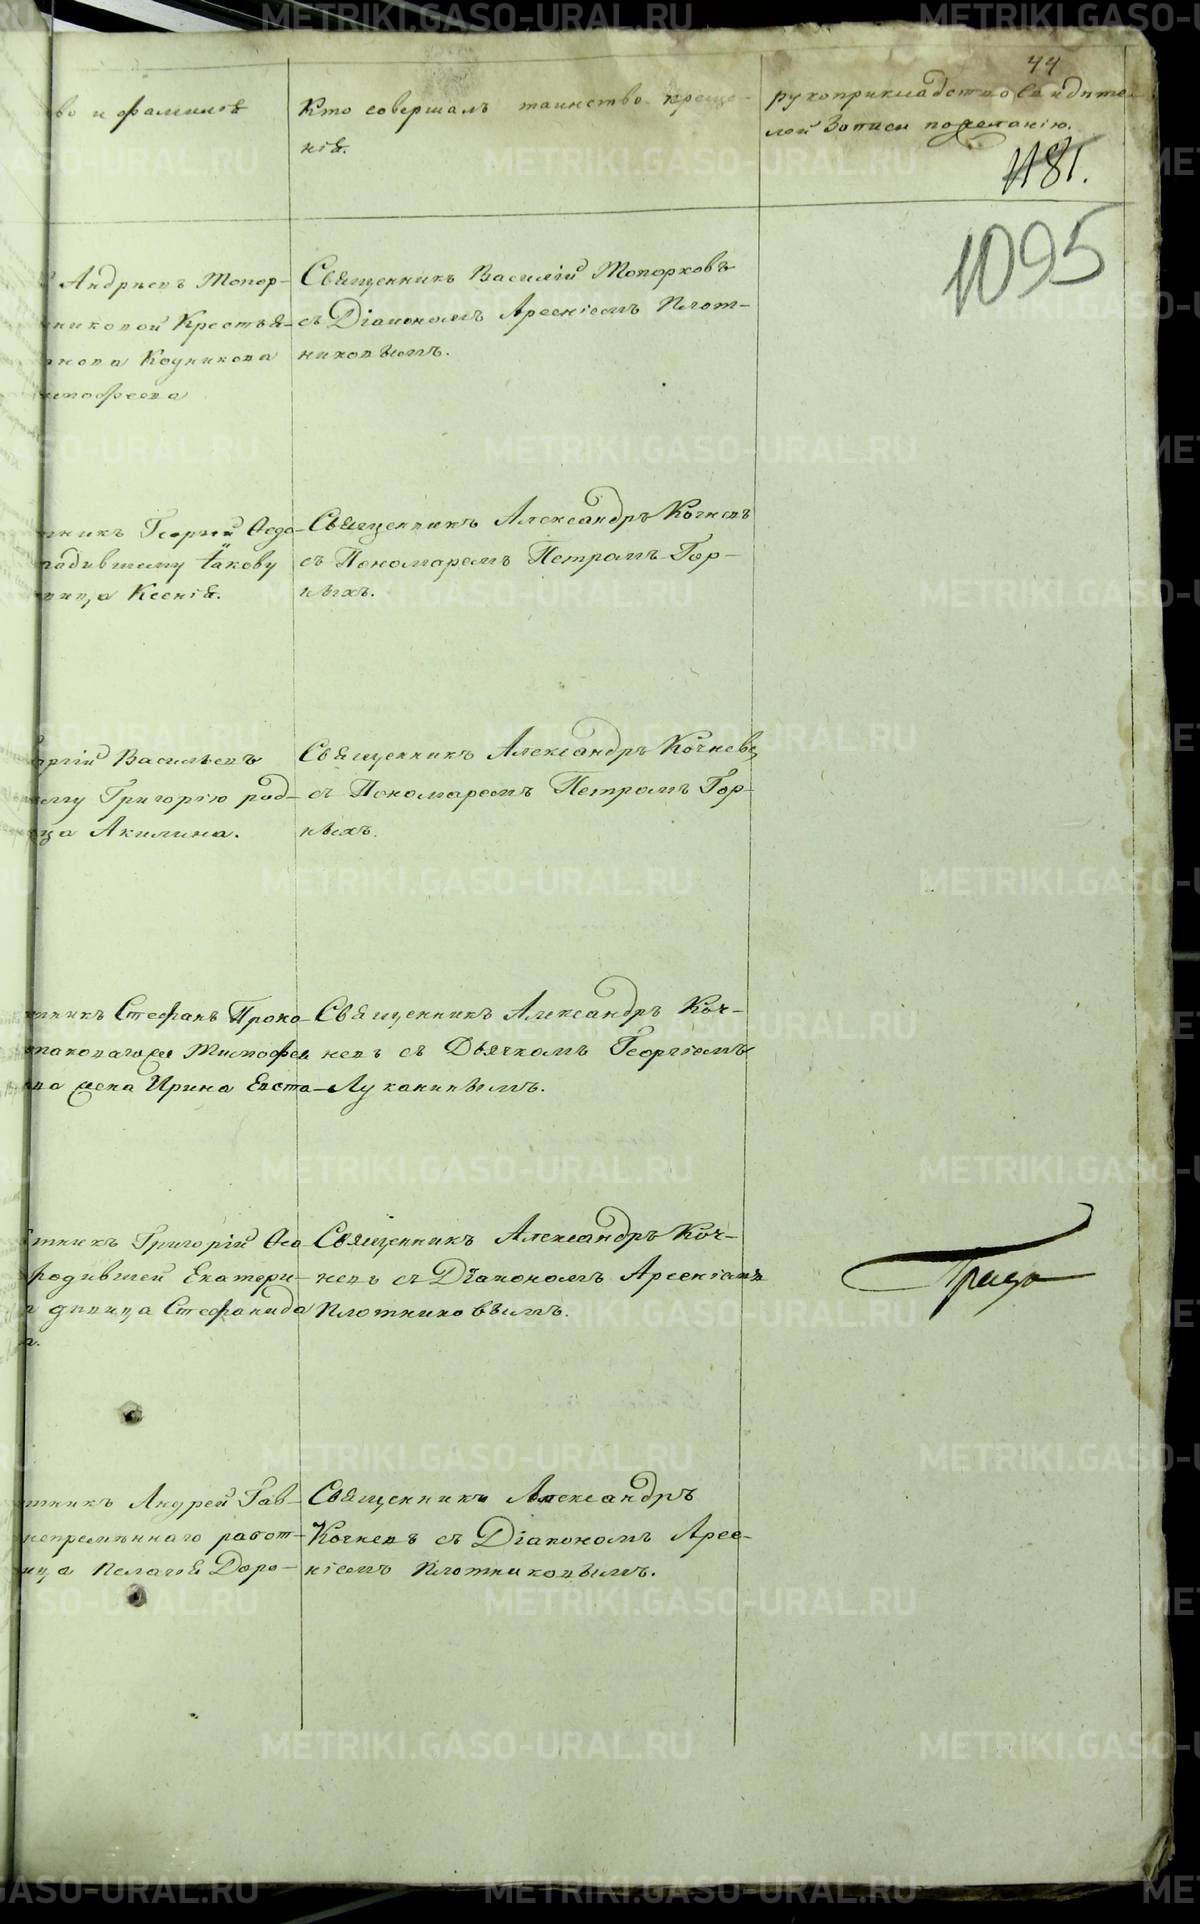 44
во и фамилія
Кто совершалъ таинство креще-
нія.
рукоприкладство свидѣте-
лей записи по желанію.
1181.
1095
Андреевъ Топор-
никовой Крестья-
нова Кодникова
мофеева
Священникъ Василій Топорковъ
съ Діакономъ Арсеніемъ Плот-
никовымъ.
никъ Георгій Ѳедо-
родившему Іакову
вица Ксенія.
Священникъ Александръ Кочневъ
съ Пономаремъ Петромъ Гор-
ныхъ.
оргій Васильевъ
ему Григорію род-
ца Акилина.
Священникъ Александръ Кочневъ,
съ Пономаремъ Петромъ Гор-
ныхъ.
тникъ Стефанъ Проко-
таковагожъ Тимофея
ва жена Ирина Евста-
Священникъ Александръ Коч-
невъ съ Дьячкомъ Георгіемъ
Луканинымъ.
тникъ Григорій Ѳео
родившей Екатери-
дѣвица Стефанида
а.
Священникъ Александръ Коч-
невъ съ Діакономъ Арсеніемъ
Плотниковымъ.
тникъ Андрей Гав-
непремѣннаго работ-
ица Пелагія Доро-
Священникъ Александръ
Кочневъ съ Діакономъ Арсе-
ніемъ Плотниковымъ.
METRIKI.GASO-URAL.RU